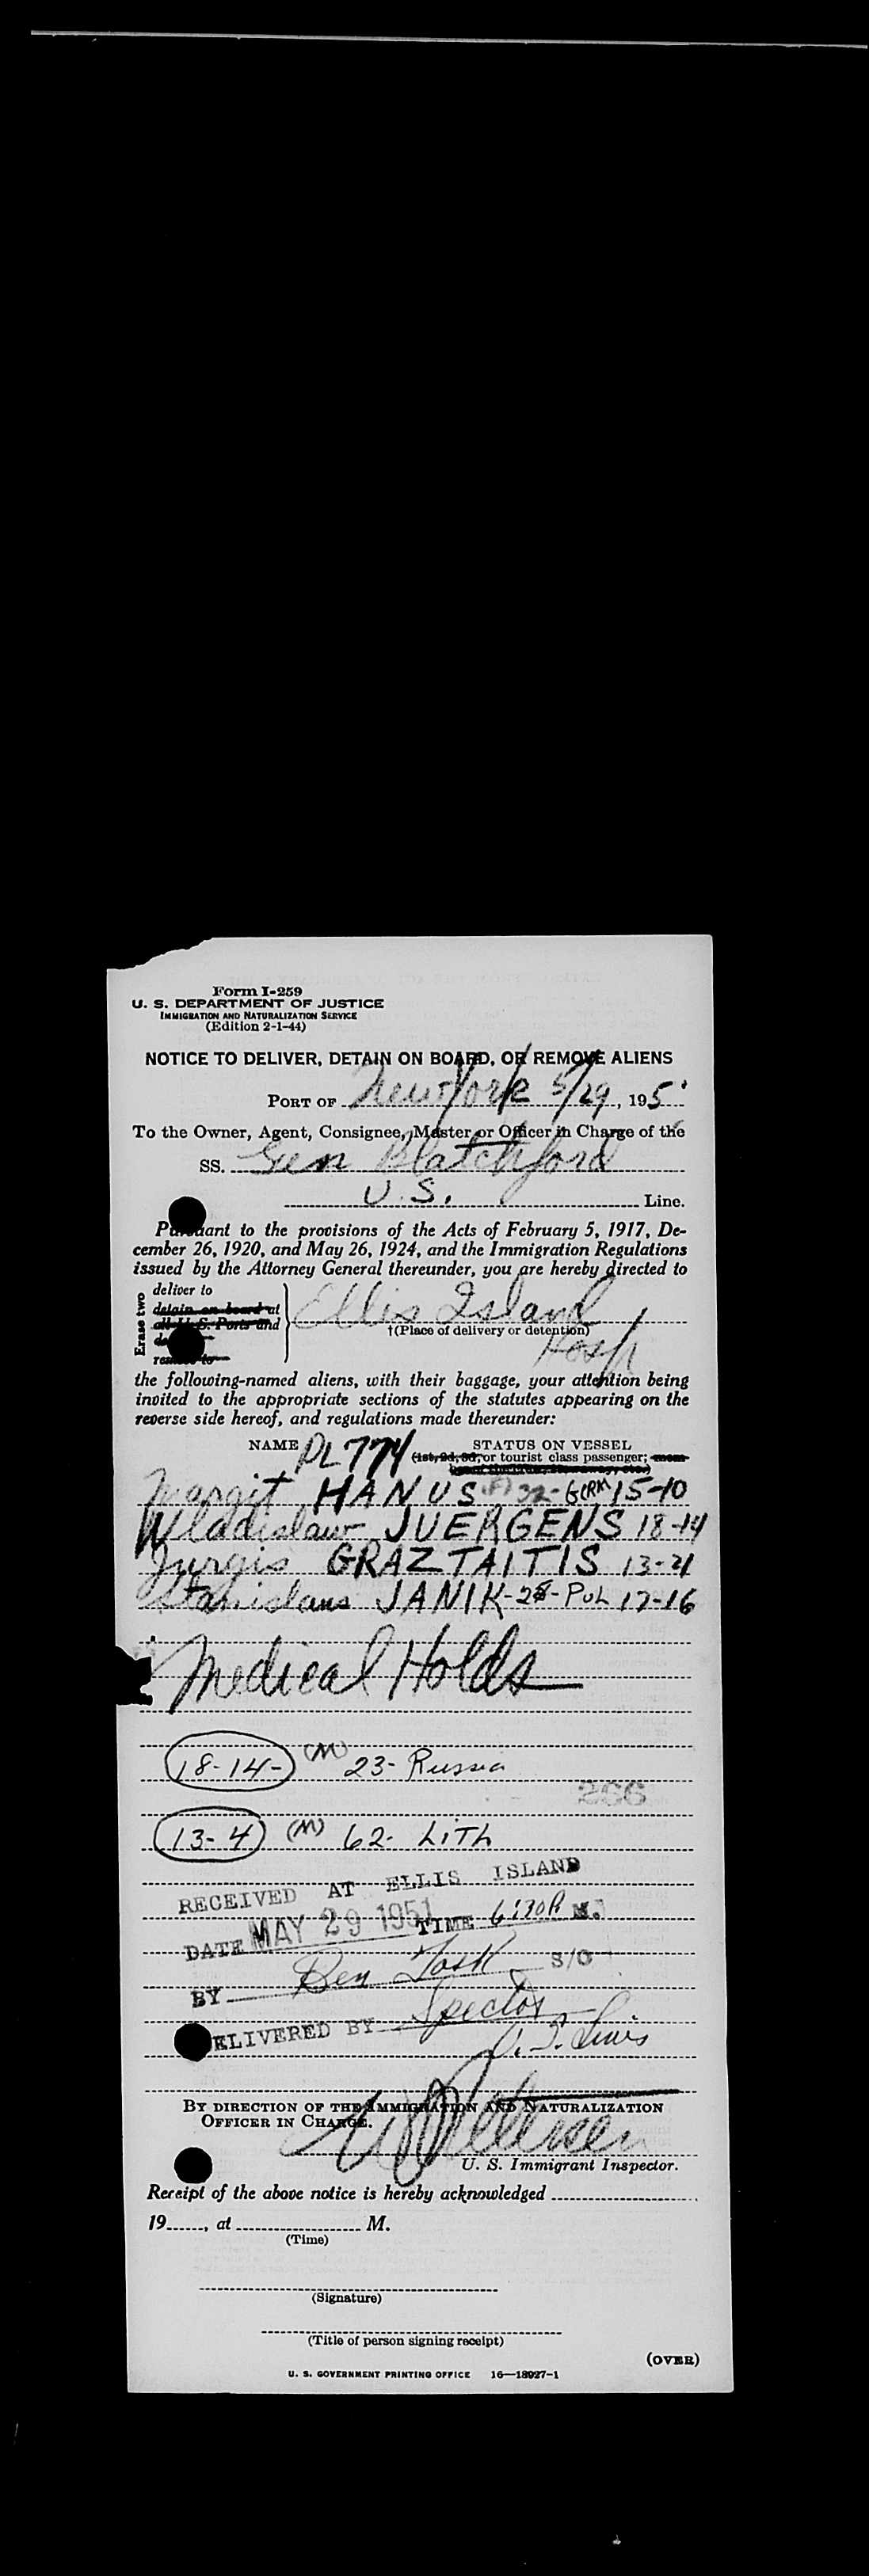 Form I-259
U. S. DEPARTMENT OF JUSTICE
IMMIGRATION AND NATURALIZATION SERVICE
(Edition 2-1-44)
NOTICE TO DELIVER, DETAIN ON BOARD, OR REMOVE ALIENS
PORT OF New York 5/29, 195
To the Owner, Agent, Consignee, Master or Officer in Charge of the
SS. Gen Blatchford
U.S. Line.
Pursuant to the provisions of the Acts of February 5, 1917, De-
cember 26, 1920, and May 26, 1924, and the Immigration Regulations
issued by the Attorney General thereunder, you are hereby directed to
Erase two
deliver to
detain on board at
all U. S. Ports and
Ellis Island
†(Place of delivery or detention)
Hosp
the following-named aliens, with their baggage, your attention being
invited to the appropriate sections of the statutes appearing on the
reverse side hereof, and regulations made thereunder:
NAME PL 774 STATUS ON VESSEL
(1st, 2d, 3d, or tourist class passenger; mem-
Margit HANUS 32-GERM 15-10
Wladislaw JUERGENS 18-14
Jurgis GRAZTAITIS 13-4
Stanislaus JANIK-28-POL 17-16
Medical Holds
18-14- (M) 23- Russia
266
13-4 (M) 62- LITH
RECEIVED AT ELLIS ISLAND
DATE MAY 29 1951 TIME 6:30P M.
BY Ben S/O
DELIVERED BY Spector
Lewis
BY DIRECTION OF THE IMMIGRATION AND NATURALIZATION
OFFICER IN CHARGE.
U. S. Immigrant Inspector.
Receipt of the above notice is hereby acknowledged
19......, at M.
(Time)
(Signature)
(Title of person signing receipt)
(OVER)
U. S. GOVERNMENT PRINTING OFFICE 16—18927-1